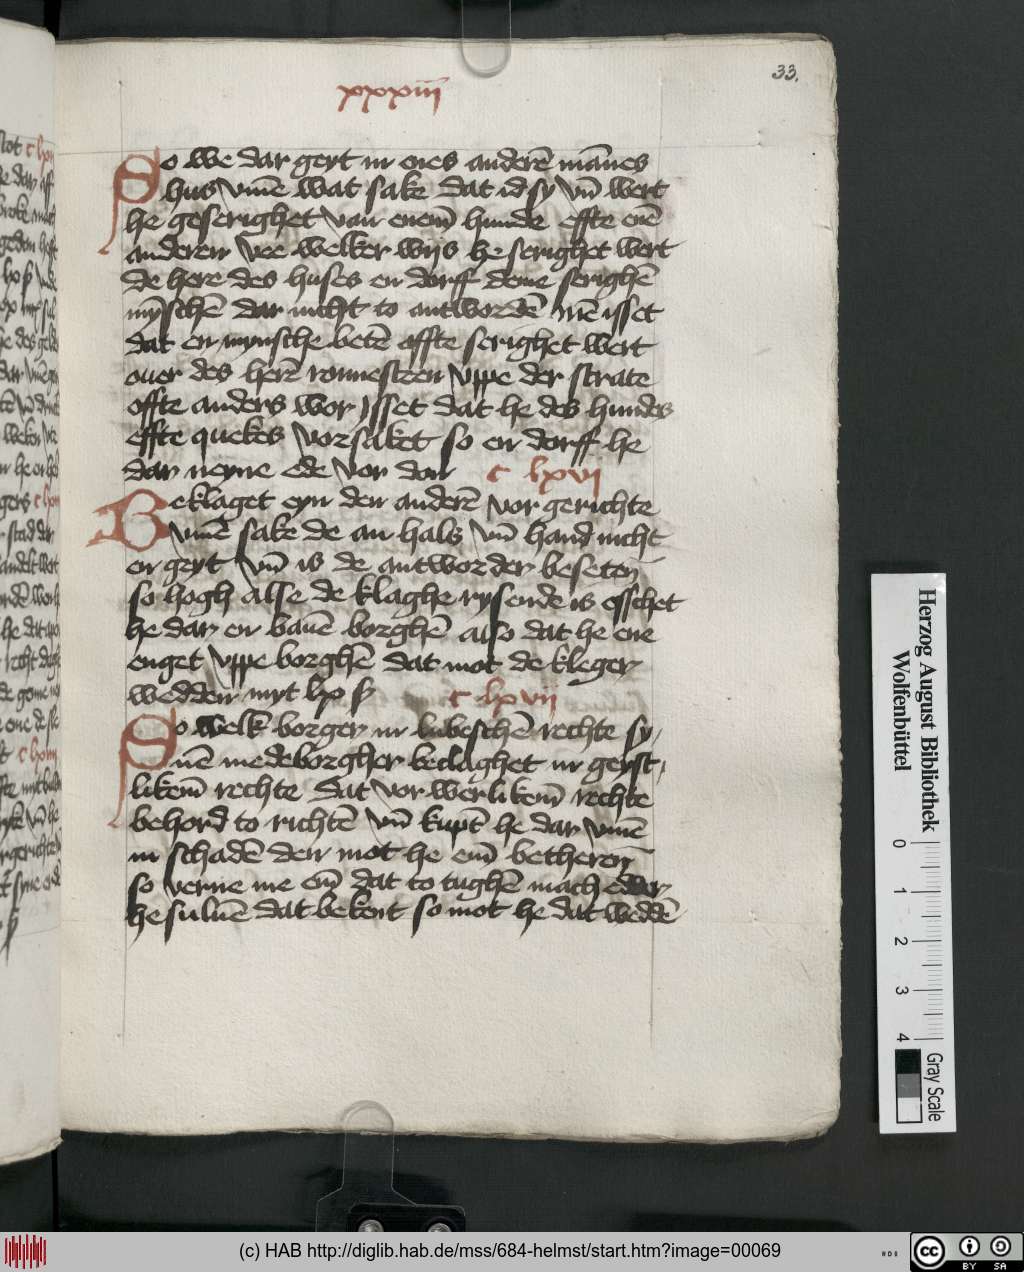 33.
xxxiij
So we dar geyt in enes anderē mānes
hus vm̄e wat sake dat id sy vn̄ wert
he geserighet van enem̄ hunde effte enē
anderen vee welker wijs he serighet wert
de here des huses en dorff deme serighē
mȳschē dar nicht to antwordē Mē isset
dat en mynsche betē offte serighet wert
ouer des herē ronnesteen vppe der strate
offte anders wor Jsset dat he des hundes
effte quekes vorsaket so en dorff he
dar neyne ede vor don c lxvj
Beklaget eyn den anderē vor gerichte
vm̄e sake de an hals vn̄ hand nicht
en geyt vn̄ is de antworder beseten
so hogh alse de klaghe rysende is esschet
he dar en bauē borghē also dat he ene
enget vppe borghē dat mot de kleger
wedden myt lx ꝭ c lxvij
So welk borger in lubeschē rechte sy
nē medeborgher beclaghet in geyst
likem̄ rechte dat vor werlikem̄ rechte
behord to richtē vn̄ kupt he dar vm̄e
in schadē den mot he em̄ betheren
so verne me em̄ dat to tughē mach edder
he suluē dat bekent so mot he dat weddē
Herzog August Bibliothek
Wolfenbüttel
0 1 2 3 4
Gray Scale
(c) HAB http://diglib.hab.de/mss/684-helmst/start.htm?image=00069
cc BY SA